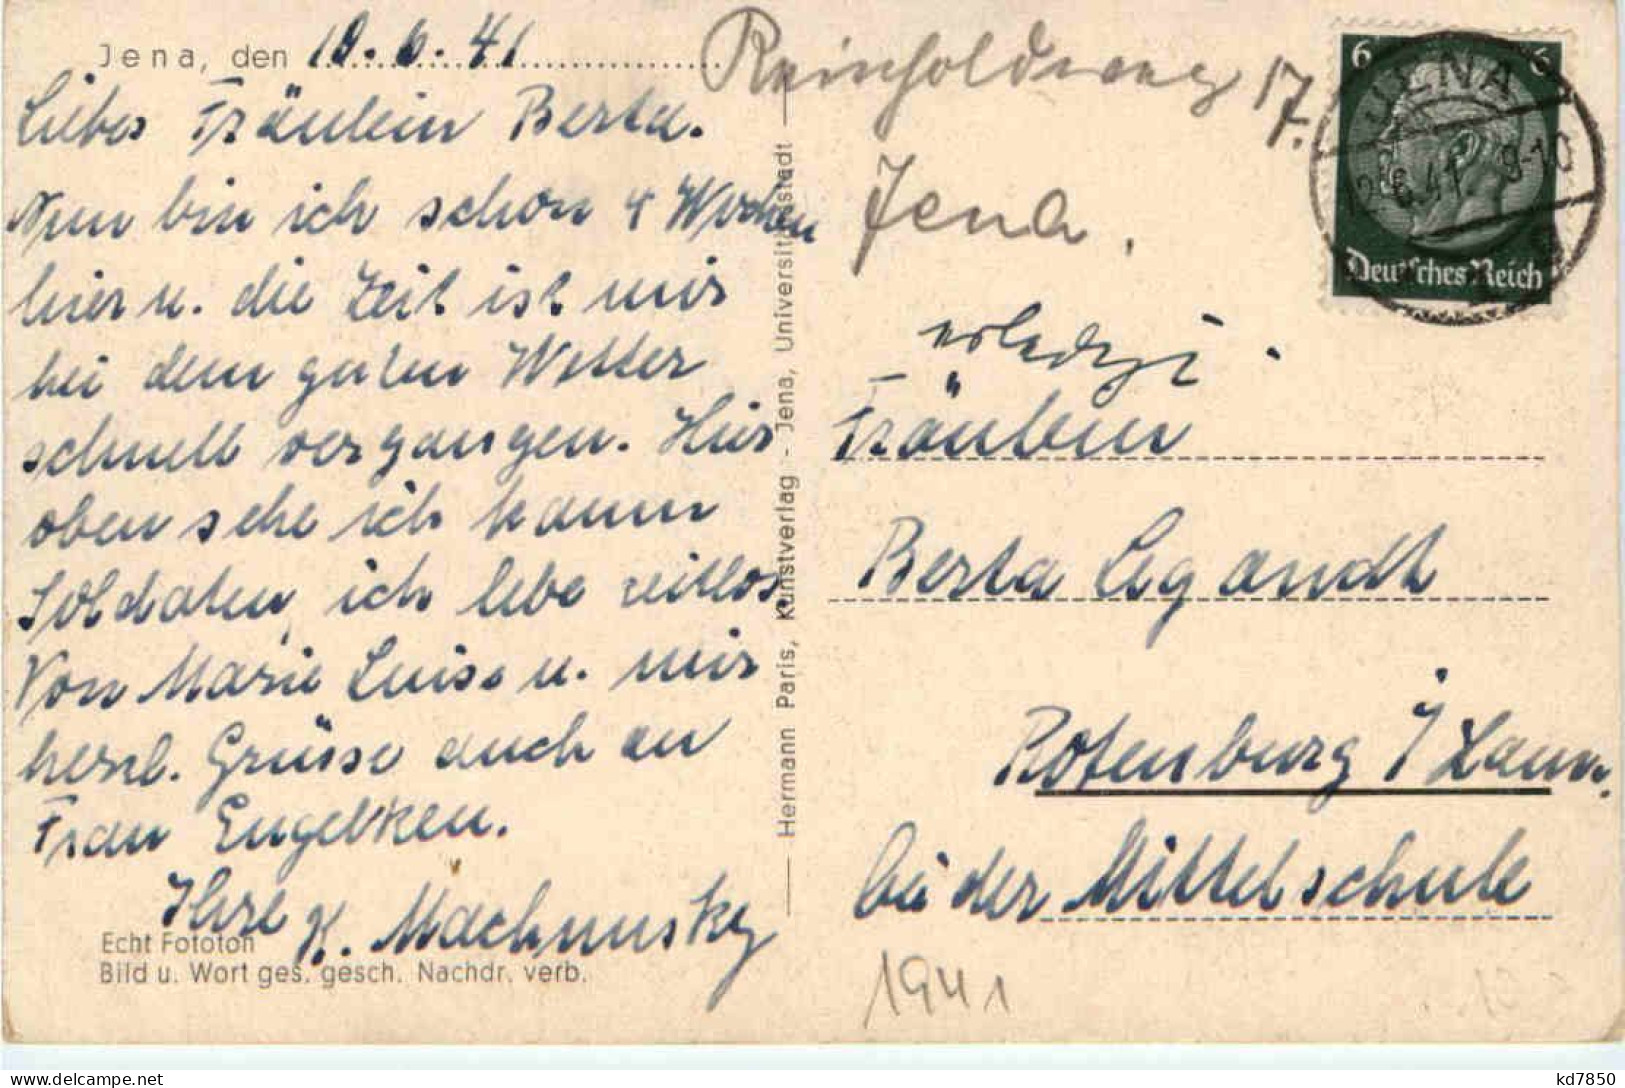 Jena, den 19.6.41
Liebes Fräulein Berta.
Nun bin ich schon 4 Wochen
hier u. die Zeit ist mir
bei dem guten Wetter
schnell vergangen. Hier
oben sehe ich kaum
Soldaten, ich lebe zeitlos.
Von Marie Luise u. mir
herzl. Grüsse auch an
Frau Engelken.
Ihre K. Machunsky
Echt Fototon
Bild u. Wort ges. gesch. Nachdr. verb.
Hermann Paris, Kunstverlag - Jena, Universitätsstadt
Reinholdsweg 17.
Jena.
erledigt.
Fräulein
Berta Wigandt
Rotenburg i/Hann.
bei der Mittelschule
1941
6 6
Deutsches Reich
JENA
6.41 9-10
kd7850